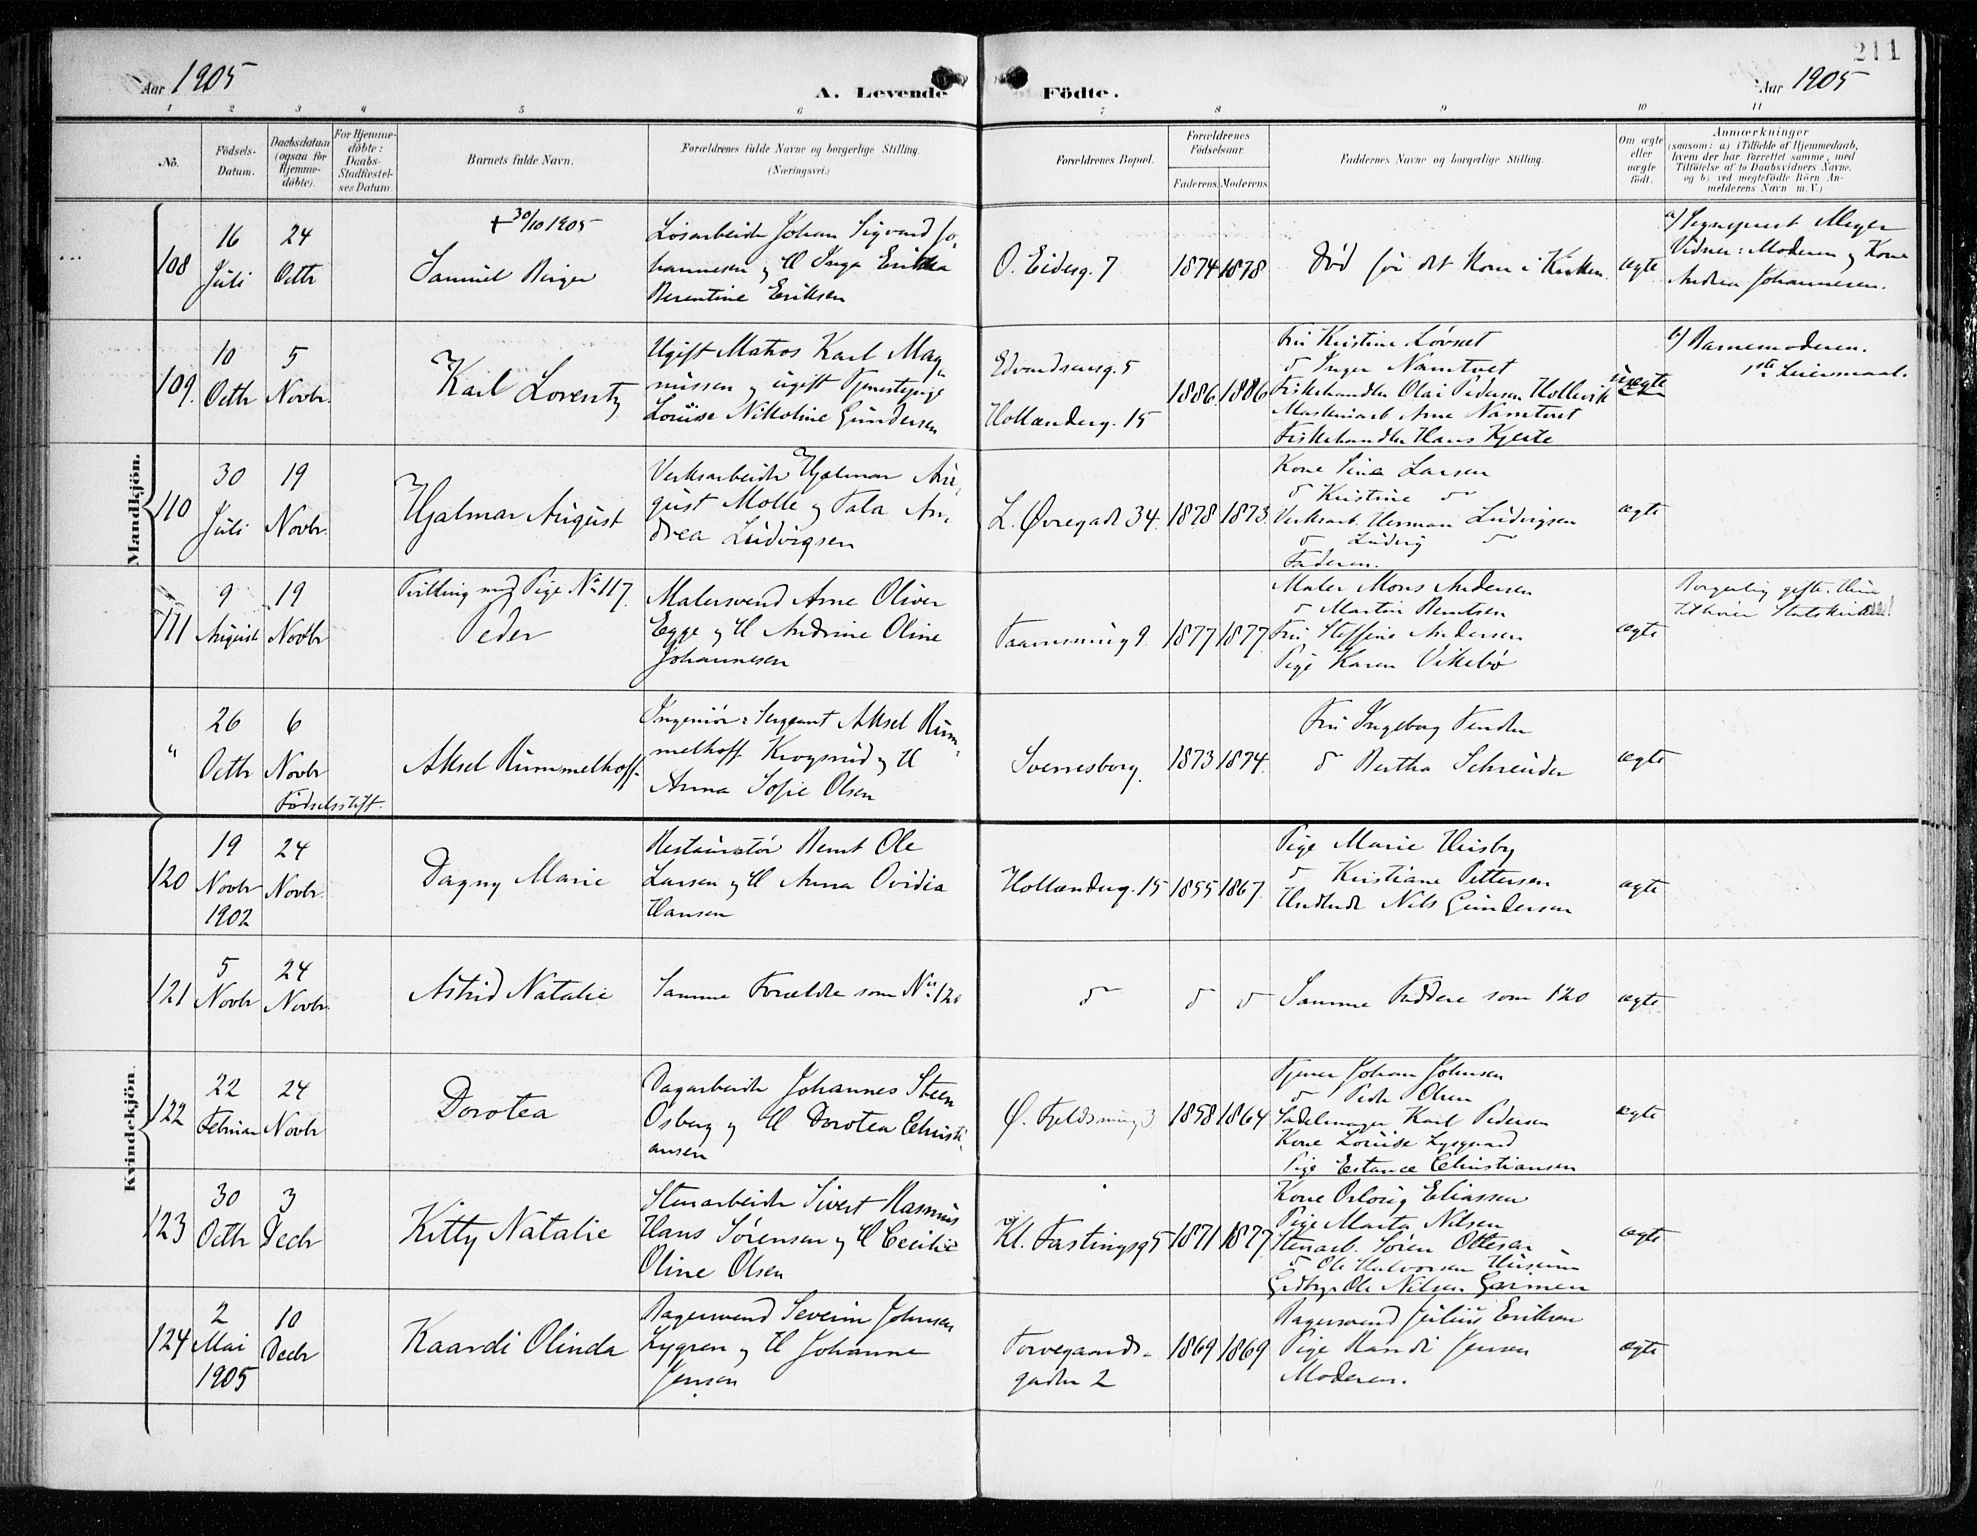 211
Aar 1905
A. Levende Födte.
Aar 1905
1 2 3 4 5 6 7 8 9 10 11
No.
Födsels-
Datum.
Daabsdatum
(ogsaa for
Hjemme-
döbte).
For Hjemme-
döbte:
Daabs-
Stadfæstel-
ses Datum.
Barnets fulde Navn.
Forældrenes fulde Navne og borgerlige Stilling.
(Næringsvei.)
Forældrenes Bopæl.
Forældrenes
Födselsaar.
Faderens. Moderens.
Faddernes Navne og borgerlige Stilling.
Om ægte
eller
uægte
født.
Anmærkninger
(saasom: a) i Tilfælde af Hjemmedaab,
hvem der har forrettet samme, med
Tilföielse af to Daabsvidners Navne,
og b) ved uægtefödte Börn An-
melderens Navn m. V.)
Mandkjön.
108
16
Juli
24
Octb
+ 30/10 1905
Samuel Birger
Løsarbeider Johan Sigvard Jo-
hannesen og H Inga Erikka
Berentine Eriksen
O. Eidesg. 7
1874 1878
Død før det kom i Kirken
ægte
a) Meyer
Vidner: Moderen og Kone
Andrea Johannesen.
109.
10
Octb
5
Novbr.
Karl Lorentz
Ugift Matros Karl Mag-
nussen og ugift Tjenestepige
Louise Nikoline Gundersen
Edvardsensg. 5
Hollænderg. 15
1886. 1886
Fru Kristine Løvset
d Inger Namtvet
Fiskehandler Olai Pedersen Hollevik
Maskinarb Arne Namtvet
Fiskehandler Hans Kjerte
uægte
b) Barnemoderen.
1ste Leiermaal.
110
30
Juli
19
Novbr.
Hjalmar August
Verksarbeider Hjalmar Au-
gust Molle og Tala An-
drea Ludvigsen
L. Øvregade 34.
1878 1873.
Kone Sina Larsen
d Kristine d
Verksarb. Herman Ludvigsen
d Ludvig d
Faderen.
ægte
111
9
August
19
Novbr
Tvilling med Pige No 117.
Peder
Malersvend Arne Oliver
Egge og H Andrine Oline
Johannesen
Taarnsmug 9.
1877 1877.
Maler Mons Andersen
d Martin Berntsen
Fru Steffine Andersen
Pige Karen Vikebø
ægte
Borgerlig gifte. Hun
tilhører Statskirken
"
26
Octb
6
Novbr
Fødselsstift.
Aksel Rummelhoff.
Ingeniør-Sergeant Aksel Rum-
melhoff Krogsrud og H
Anna Sofie Olsen
Sverresborg.
1873 1874.
Fru Ingeborg
d Bertha Schreuder
ægte
Kvindekjön
120
19
Novbr
1902
24
Novbr.
Dagny Marie
Restauratør Bernt Ole
Larsen og H Anna Ovidia
Hansen
Hollænderg. 15
1855 1867.
Pige Marie Huisby
d Kristiane Pettersen
Nils Gundersen
ægte
121
5
Novbr
24
Novbr.
Astrid Natalie
Samme Forældre som No 120
d
d d
Samme Faddere som 120
ægte
122
22
Februar
24
Novbr
Dorotea
Dagarbeider Johannes Steen
Osberg og H Dorotea Christi-
ansen
Ø. Fjeldsmug 3
1858 1864
Tjener Johan Johnsen
d Peder Olsen
Sadelmager Karl Pedersen
Kone Louise Lysgaard
Pige Estance Christiansen
ægte
123
30
Octb
3
Decbr
Kitty Natalie
Stenarbeider Sivert Rasmus
Hans Sørensen og H Cecilie
Oline Olsen
Kl. Fastingsg 5
1871 1877.
Kone Orloug Eliassen
Pige Marta Nilsen
Stenarb. Søren Ottesen
d Ole Halvorsen Husum
Ole Nilsen Garmen
ægte
124
2
Mai
1905
10
Decbr
Kaardi Olinda
Bagersvend Severin Johnsen
Lygren og H Johanne
Jensen
Torvegaards-
gaden 2
1869 1869
Bagersvend Julius Eriksen
Pige Randi Jensen
Moderen.
ægte